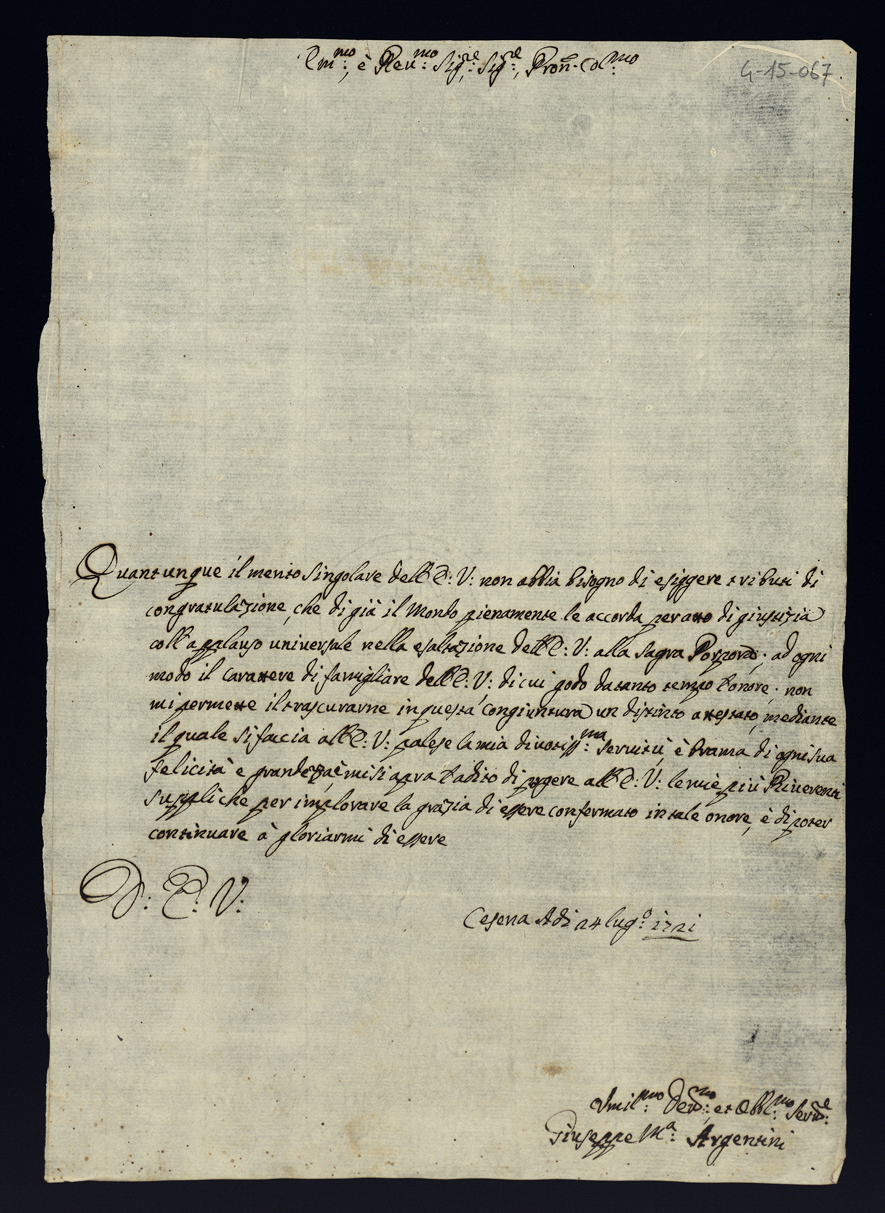 Em:mo, è Rev:mo Sig:re Sig:re, Pron: Col:mo
G-15-067
Quantunque il merito singolare dell'E: V: non abbia bisogno di esiggere tributi di
congratulazione, che di già il Mondo pienamente le accorda per atto di giustizia
coll'applauso universale nella esaltazione dell'E: V: alla sagra Porpora; ad ogni
modo il Carattere di famigliare dell'E: V: di cui godo da tanto tempo l'onore; non
mi permette il trascurarne in questa congiuntura un distinto attestato, mediante
il quale si faccia all'E: V: palese la mia divotiss:ma servitù è brama di ogni sua
felicità e grandezza, è mi si apra l'adito di porgere all'E: V: le mie più Riverenti
suppliche per implorare la grazia di essere confermato in tale onore, è di poter
continuare à gloriarmi di essere
D: E: V:
Cesena Adi 24 lug:o 1721
Umil:mo Dev:mo et Obbl:mo Serv:e
Giuseppe M:a Argentini